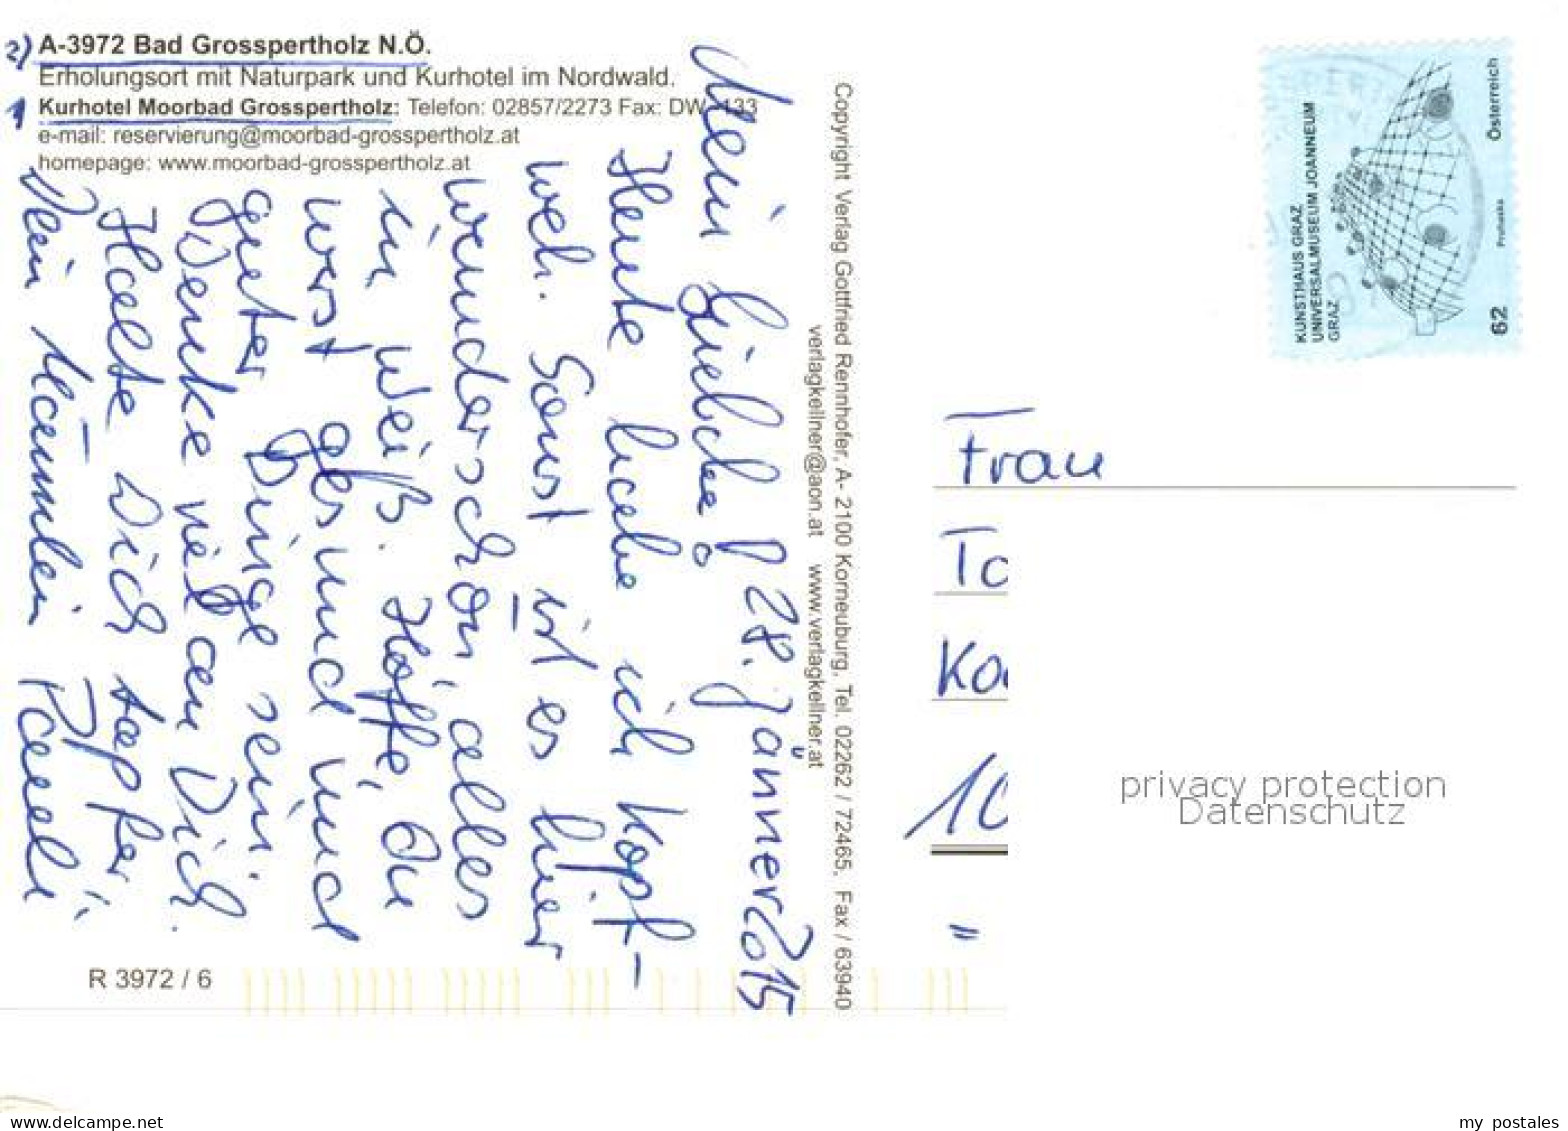 2) A-3972 Bad Grosspertholz N.Ö.
Erholungsort mit Naturpark und Kurhotel im Nordwald.
1 Kurhotel Moorbad Grosspertholz: Telefon: 02857/2273 Fax: DW 133
e-mail: reservierung@moorbad-grosspertholz.at
homepage: www.moorbad-grosspertholz.at
28. Jänner 2015
Mein Liebchen!
Heute habe ich Kopf-
weh. Sonst ist es hier
wunderschön, alles
in weiß. Hoffe, Du
wirst gesund und
guter Dinge sein.
Denke viel an Dich.
Halte Dich tapfer!
Dein Männlein Pauli
R 3972 / 6
Copyright Verlag Gottfried Rennhofer, A- 2100 Korneuburg, Tel. 02262 / 72465, Fax / 63940
verlagkellner@aon.at www.verlagkellner.at
KUNSTHAUS GRAZ
UNIVERSALMUSEUM JOANNEUM
GRAZ
Österreich
Prohaska
62
Frau
To
Ka
10
=
privacy protection
Datenschutz
www.delcampe.net
my_postales